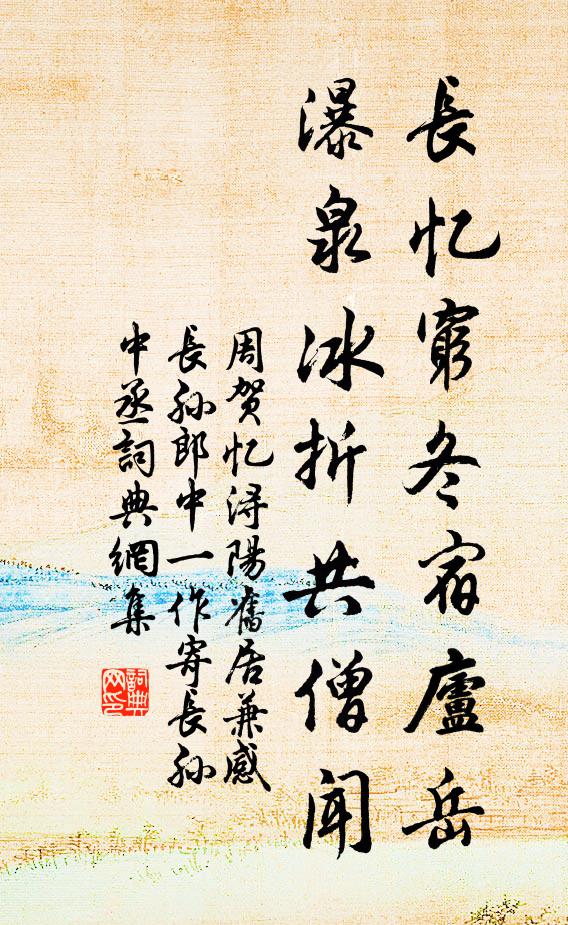 長忆窮冬宿廬岳
瀑泉冰折共僧聞
周贺忆潯陽舊居兼感
長孙郎中一作寄長孙
中丞詞典網集
詞典
网印